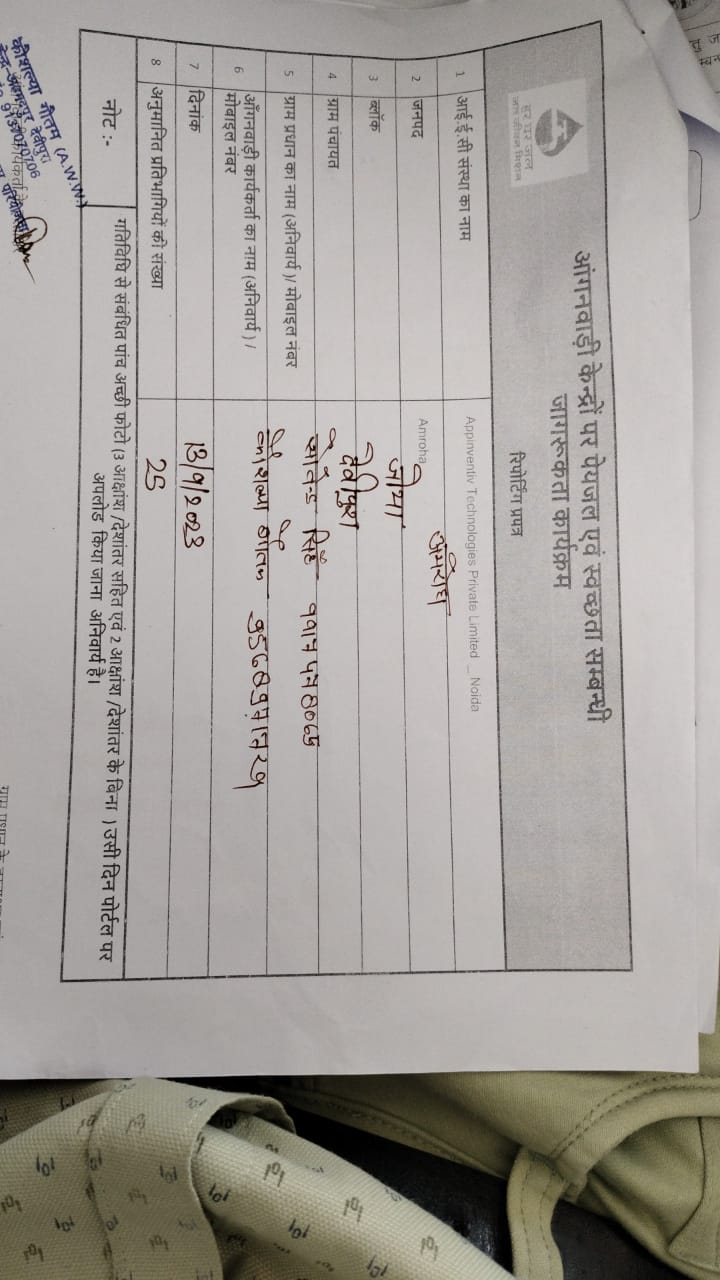 हर घर जल
जल जीवन मिशन
आंगनवाड़ी केन्द्रों पर पेयजल एवं स्वच्छता सम्बन्धी
जागरूकता कार्यक्रम
रिपोर्टिंग प्रपत्र
1 आई.ई.सी संस्था का नाम Appinventiv Technologies Private Limited _ Noida
2 जनपद Amroha अमरोहा
3 ब्लॉक जोया
4 ग्राम पंचायत देवीपुरा
5 ग्राम प्रधान का नाम (अनिवार्य )/ मोबाइल नंबर सिंह
6 आँगनवाड़ी कार्यकर्ता का नाम (अनिवार्य ) /
मोबाइल नंबर कौशल्या गौतम
7 दिनांक 13/9/2023
8 अनुमानित प्रतिभागियों की संख्या 25
नोट :- गतिविधि से संबंधित पांच अच्छी फोटो (3 आक्षांश /देशांतर सहित एवं 2 आक्षांश /देशांतर के बिना ) उसी दिन पोर्टल पर
अपलोड किया जाना अनिवार्य है।
कौशल्या गौतम (A.W.W.)